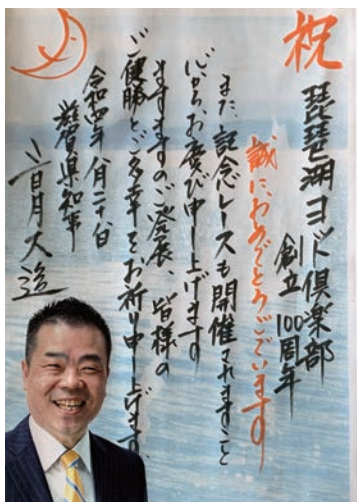 祝
琵琶湖ヨット倶楽部
創立100周年
誠におめでとうございます
また、記念レースも開催されますこと
心からお慶び申し上げます
ますますのご発展、皆様の
ご健勝とご多幸をお祈り申し上げます。
令和四年八月二十八日
滋賀県知事
三日月大造